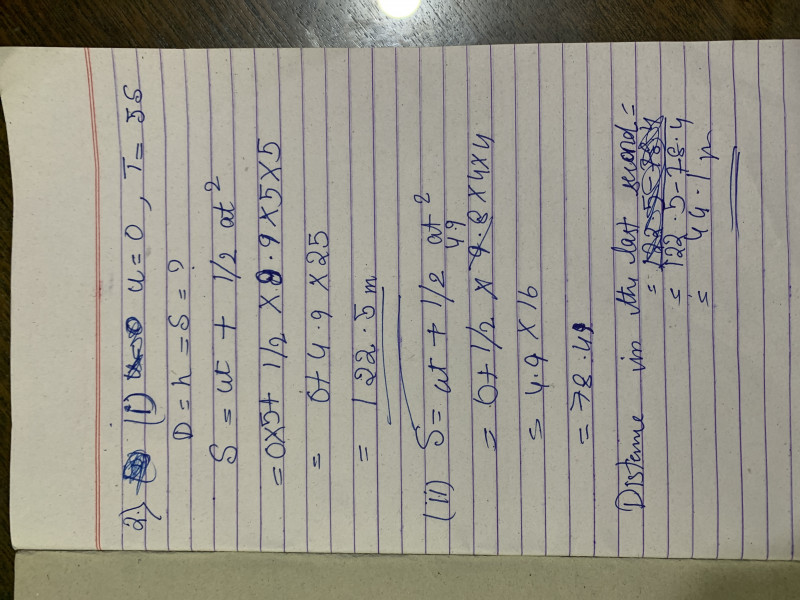 2) (i) u=0, T= 5s
D=h=S=?
S = ut + 1/2 at²
=0x5+ 1/2 x9.9x5x5
= 0+4.9 x25
= 122.5m
(ii) S=ut+1/2 at²
49
= 0+1/2 x 9.8x4x4
= 4.9 x 16
=78.4
Distance in the last second =
= 122.5-78.4
= 122.5-78.4
= 44.1 m